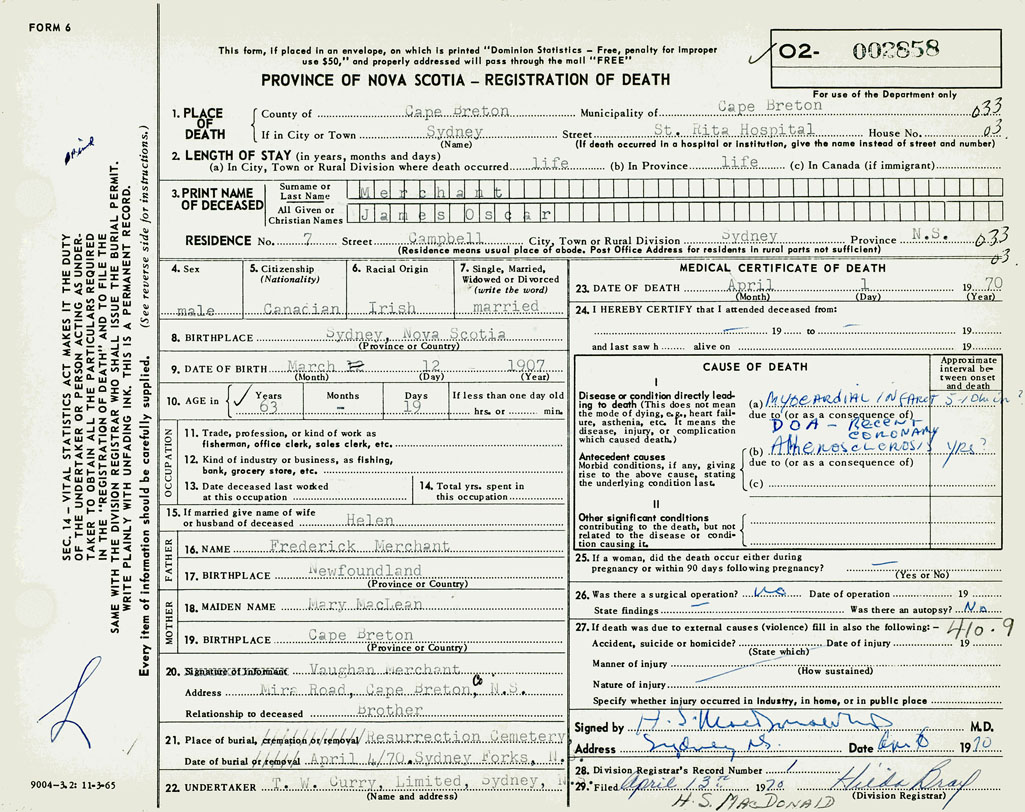 FORM 6
This form, if placed in an envelope, on which is printed "Dominion Statistics – Free, penalty for improper
use $50," and properly addressed will pass through the mail "FREE"
PROVINCE OF NOVA SCOTIA – REGISTRATION OF DEATH
02- 002858
For use of the Department only
1. PLACE OF DEATH
County of Cape Breton Municipality of Cape Breton 033
If in City or Town Sydney Street St. Rita Hospital House No. 03
(Name) (If death occurred in a hospital or institution, give the name instead of street and number)
2. LENGTH OF STAY (in years, months and days)
(a) In City, Town or Rural Division where death occurred life (b) In Province life (c) In Canada (if immigrant)
3. PRINT NAME OF DECEASED
Surname or Last Name Merchant
All Given or Christian Names James Oscar
RESIDENCE No. 7 Street Campbell City, Town or Rural Division Sydney Province N.S. 033
(Residence means usual place of abode. Post Office Address for residents in rural parts not sufficient) 03
4. Sex
male
5. Citizenship
(Nationality)
Canadian
6. Racial Origin
Irish
7. Single, Married,
Widowed or Divorced
(write the word)
married
8. BIRTHPLACE Sydney, Nova Scotia
(Province or Country)
9. DATE OF BIRTH March 12 1907
(Month) (Day) (Year)
10. AGE in Years 63 Months – Days 19 If less than one day old
hrs. or min.
OCCUPATION
11. Trade, profession, or kind of work as
fisherman, office clerk, sales clerk, etc.
12. Kind of industry or business, as fishing,
bank, grocery store, etc.
13. Date deceased last worked
at this occupation
14. Total yrs. spent in
this occupation
15. If married give name of wife
or husband of deceased Helen
FATHER
16. NAME Frederick Merchant
17. BIRTHPLACE Newfoundland
(Province or Country)
MOTHER
18. MAIDEN NAME Mary MacLean
19. BIRTHPLACE Cape Breton
(Province or Country)
20. Signature of Informant Vaughan Merchant
Address Mira Road, Cape Breton, Co N.S.
Relationship to deceased Brother
21. Place of burial, cremation or removal Resurrection Cemetery
Date of burial or removal April 4/70. Sydney Forks, N.
22. UNDERTAKER T. W. Curry, Limited, Sydney, N.
(Name and address)
MEDICAL CERTIFICATE OF DEATH
23. DATE OF DEATH April 1 1970
(Month) (Day) (Year)
24. I HEREBY CERTIFY that I attended deceased from:
– 19 to – 19
and last saw h alive on 19
CAUSE OF DEATH
Approximate
interval be-
tween onset
and death
I
Disease or condition directly lead-
ing to death (This does not mean
the mode of dying, e.g., heart fail-
ure, asthenia, etc. It means the
disease, injury, or complication
which caused death.)
(a) MYOCARDIAL INFARCT 5-10 min?
due to (or as a consequence of)
DOA – RECENT
CORONARY
(b) ATHEROSCLEROSIS yrs?
Antecedent causes
Morbid conditions, if any, giving
rise to the above cause, stating
the underlying condition last.
due to (or as a consequence of)
(c)
II
Other significant conditions
contributing to the death, but not
related to the disease or condi-
tion causing it.
25. If a woman, did the death occur either during
pregnancy or within 90 days following pregnancy? –
(Yes or No)
26. Was there a surgical operation? No Date of operation 19
State findings – Was there an autopsy? No
27. If death was due to external causes (violence) fill in also the following: – 410.9
Accident, suicide or homicide? Date of injury 19
(State which)
Manner of injury
(How sustained)
Nature of injury
Specify whether injury occurred in Industry, in home, or in public place
Signed by H. S. MacDonald M.D.
Address Sydney N.S. Date 1970
28. Division Registrar's Record Number 1
29. Filed April 13th 1970 Hilda Bray
(Division Registrar)
H. S. MACDONALD
SEC. 14 – VITAL STATISTICS ACT MAKES IT THE DUTY
OF THE UNDERTAKER OR PERSON ACTING AS UNDER-
TAKER TO OBTAIN ALL THE PARTICULARS REQUIRED
IN THE "REGISTRATION OF DEATH" AND TO FILE THE
SAME WITH THE DIVISION REGISTRAR WHO SHALL ISSUE THE BURIAL PERMIT.
WRITE PLAINLY WITH UNFADING INK. THIS IS A PERMANENT RECORD.
Every item of information should be carefully supplied. (See reverse side for instructions.)
9004–3.2: 11-3-65